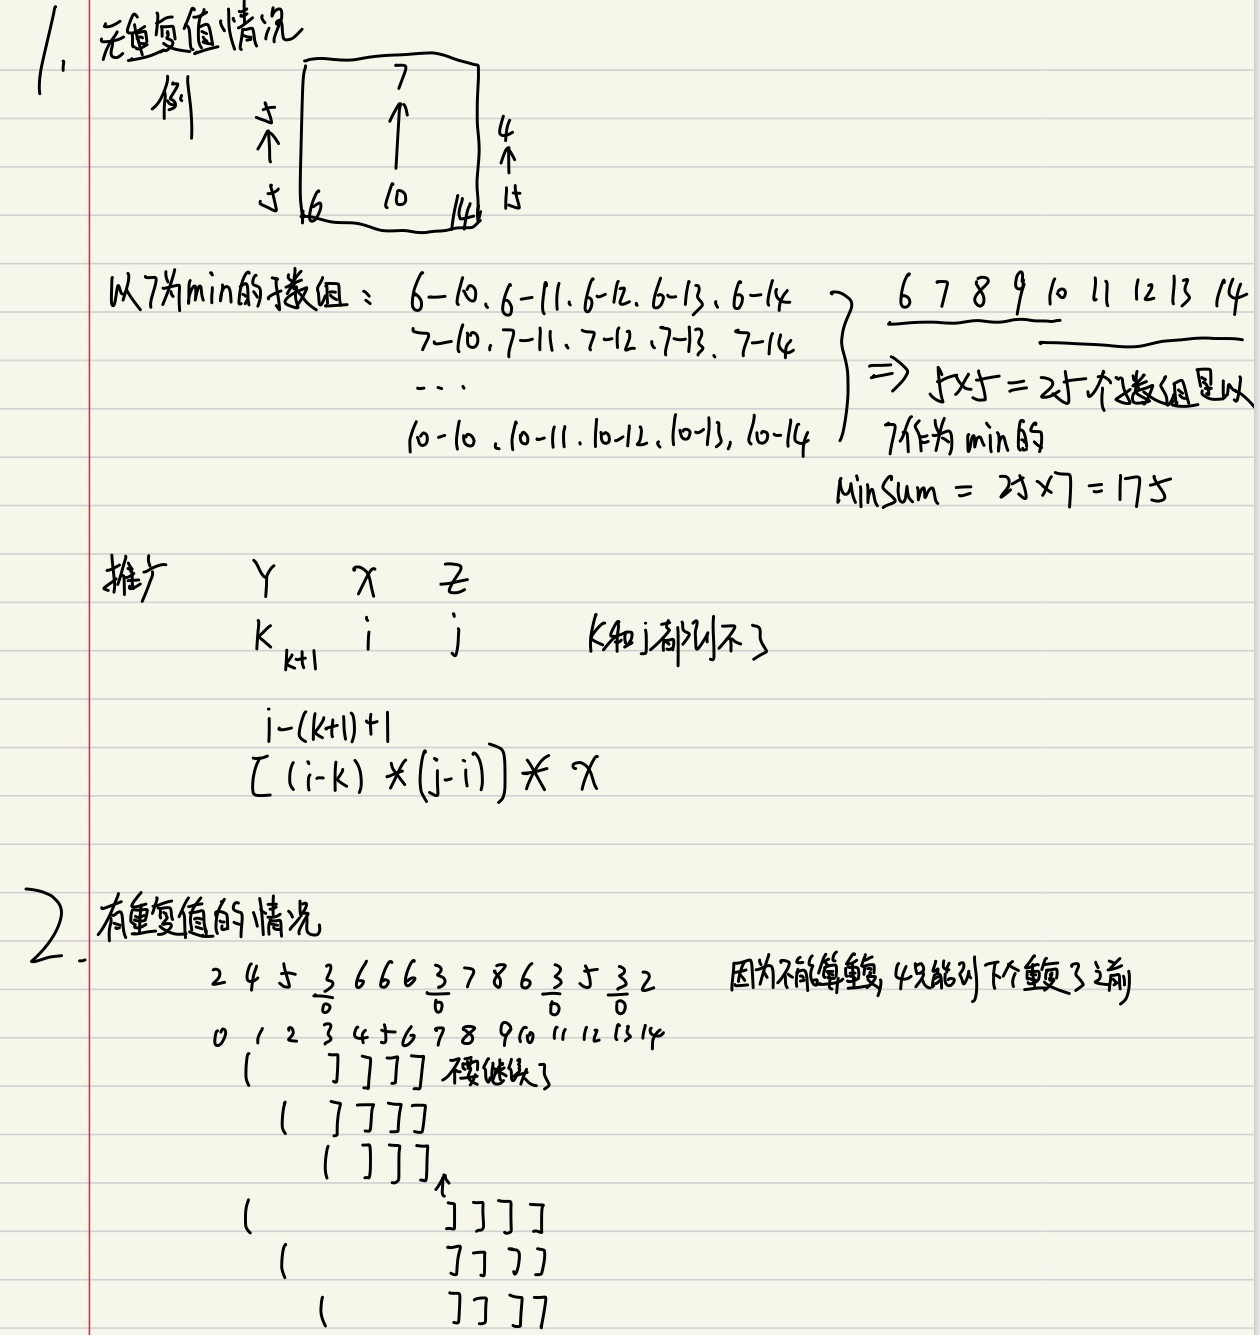 1. 无重复值情况
例
7
5 4
5 6 10 14 15
以7为min的子数组: 6-10、6-11、6-12、6-13、6-14
7-10、7-11、7-12、7-13、7-14
...
10-10、10-11、10-12、10-13、10-14
6 7 8 9 10 11 12 13 14
=> 5×5=25个子数组是以
7作为min的
MinSum = 25×7=175
推广 Y X Z
K k+1 i j K和j都到不了
i-(k+1)+1
[(i-k)*(j-i)]*X
2. 有重复值的情况
2 4 5 3 6 6 6 3 7 8 6 3 5 3 2 因为不能算重复, 4只能到下个重复3之前
0 0 0 0
0 1 2 3 4 5 6 7 8 9 10 11 12 13 14
( ] ] ] ] 不要继续了
( ] ] ] ]
( ] ] ]
( ] ] ] ]
( ] ] ] ]
( ] ] ] ]